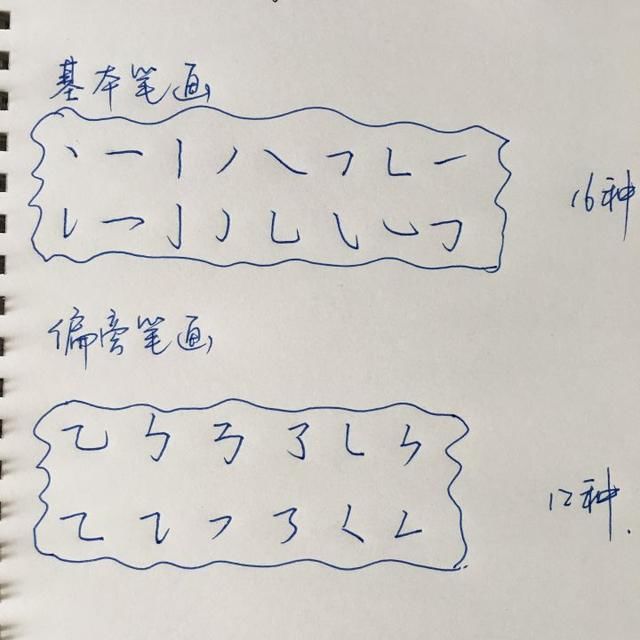 基本笔画
丶 一 丨 丿 ㇏ ㇇ ㇗ ㇀
㇙ ㇖ 亅 ㇓ ㇄ ㇂ ㇃ ㇆
16种
偏旁笔画
乙 ㄣ ㇡ ㇋ ㇄ ㇉
㇈ ㇊ ㇇ ㇌ ㇛ ㇜
12种.